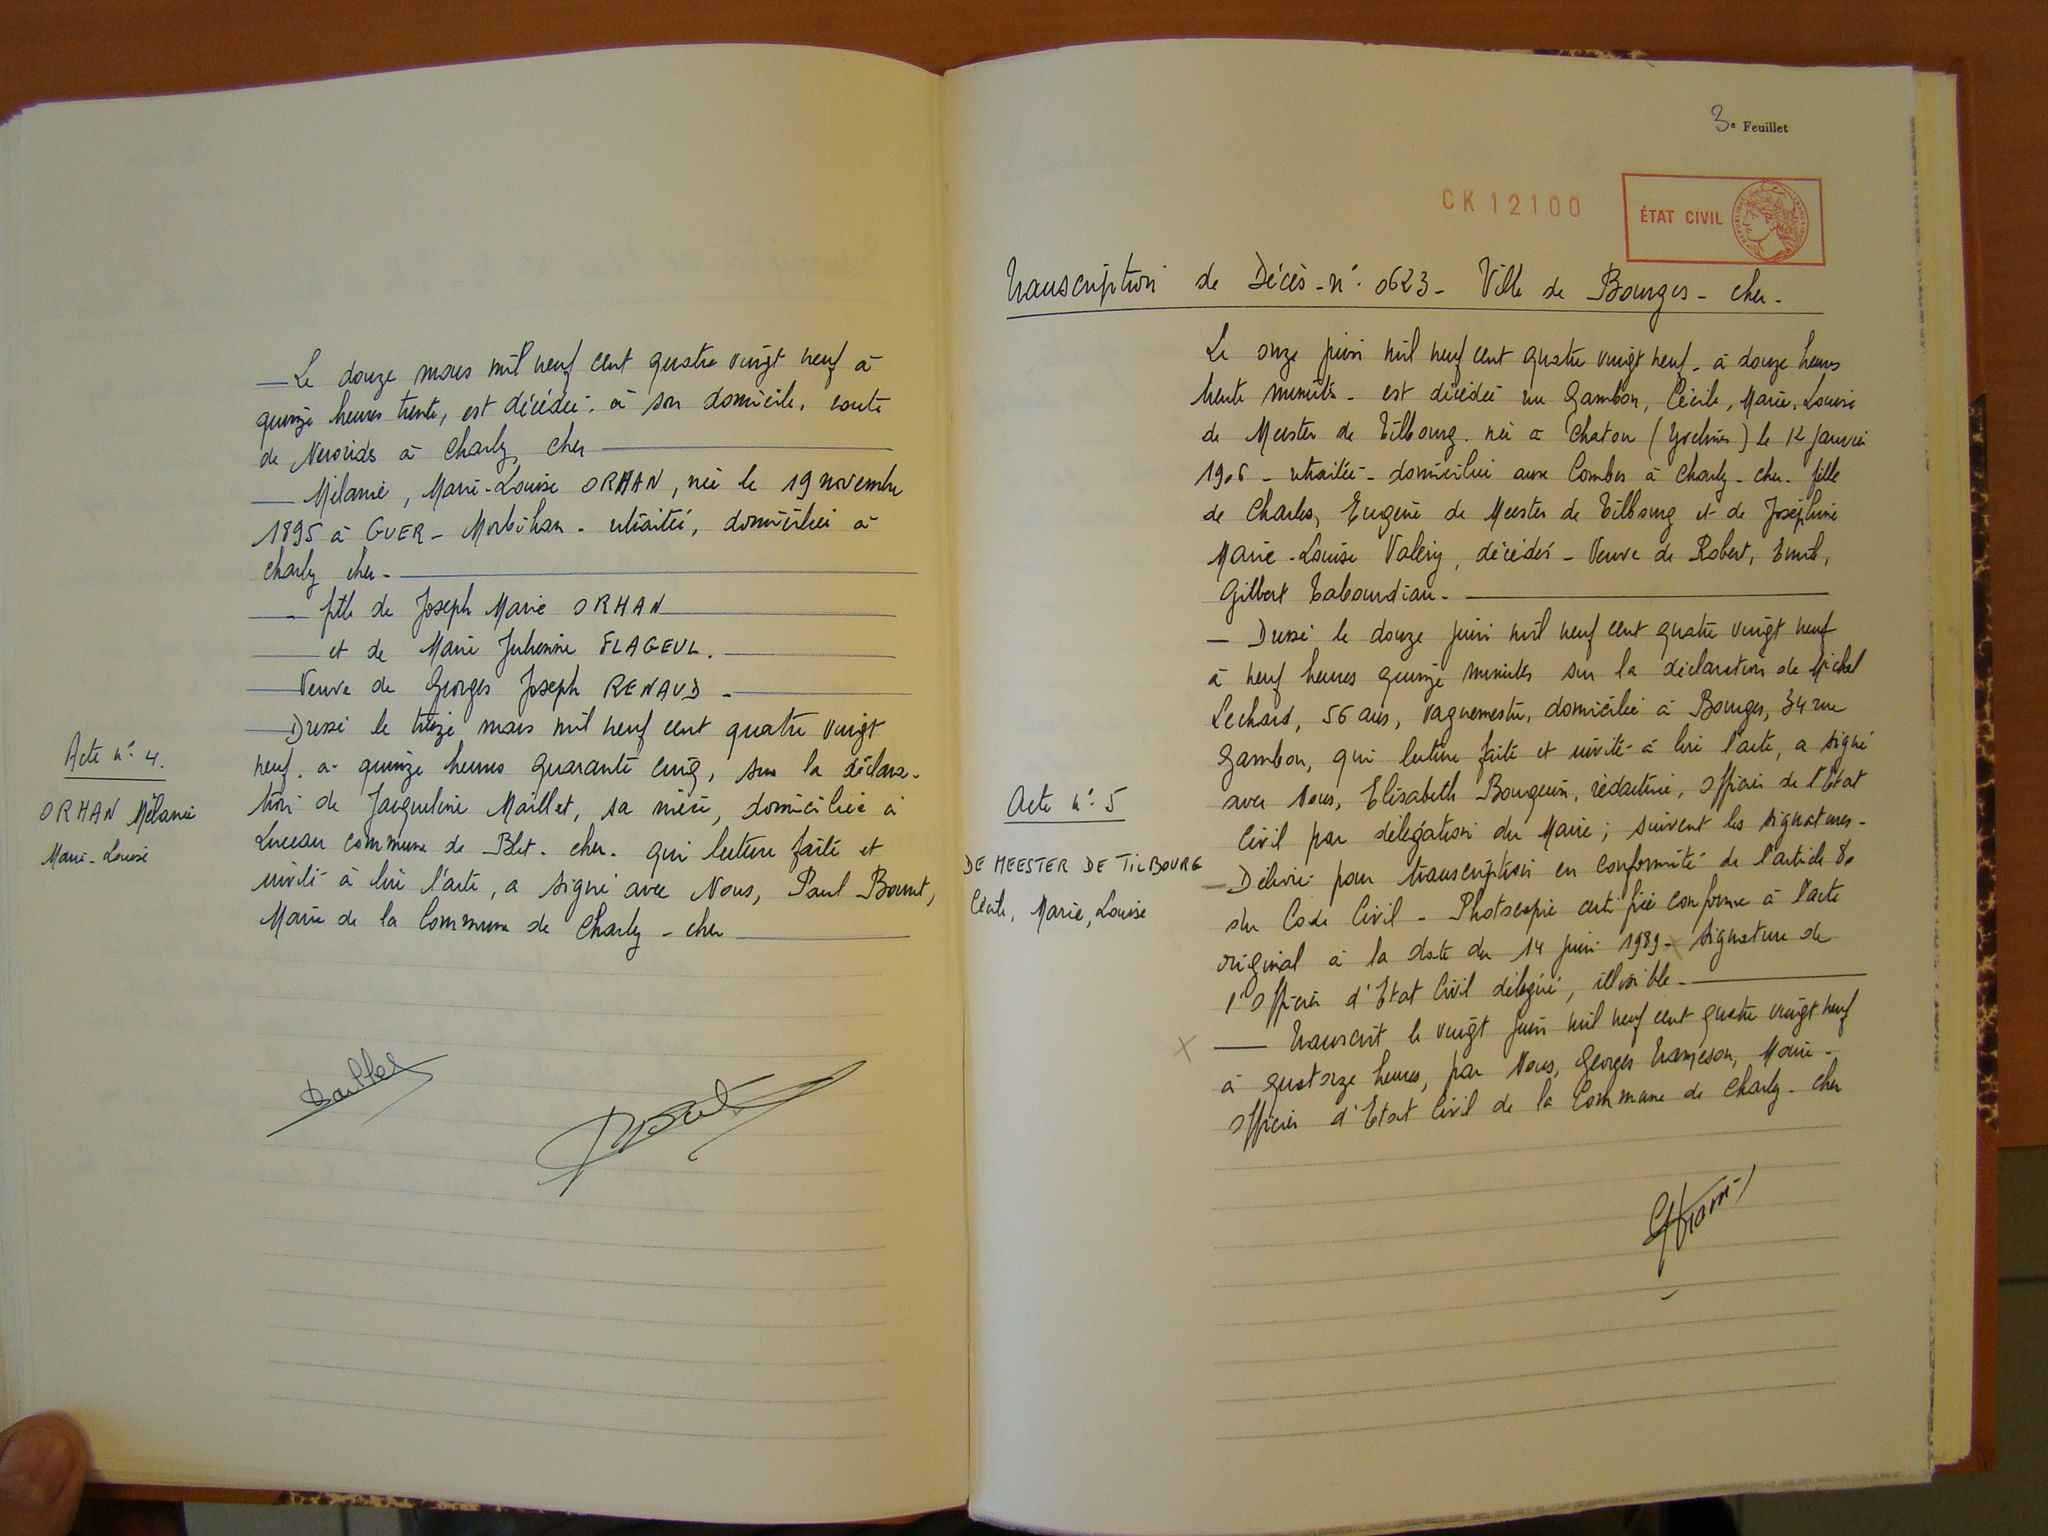 Le douze mars mil neuf cent quatre vingt neuf à
quinze heures trente, est décédée, à son domicile, route
de à Charly, Cher
Mélanie, Marie-Louise ORHAN, née le 19 novembre
1895 à GUER - Morbihan - retraitée, domiciliée à
Charly cher -
fille de Joseph Marie ORHAN
et de Marie Julienne FLAGEUL.
Veuve de Georges Joseph RENAUD -
Dressé le treize mars mil neuf cent quatre vingt
neuf. à quinze heures quarante cinq, sur la déclara-
tion de Jacqueline Maillet, sa nièce, domiciliée à
commune de Blet - cher - qui lecture faite et
invité à lire l'acte, a signé avec Nous, Paul
Maire de la Commune de Charly - cher
Acte n° 4.
ORHAN Mélanie
Marie-Louise
3e Feuillet
CK 12100
ÉTAT CIVIL
Transcription de Décès - n° 0623 - Ville de Bourges - cher -
Le onze juin mil neuf cent quatre vingt neuf - à douze heures
trente minutes - est décédée rue Gambon, Cécile, Marie, Louise
de Meester de Tilbourg. née à Chatou (Yvelines) le 12 janvier
1906 - retraitée - domiciliée aux Combes à Charly - cher - fille
de Charles, Eugène de Meester de Tilbourg et de Joséphine
Marie-Louise Valéry, décédés - Veuve de Robert, Emile,
Gilbert
Dressé le douze juin mil neuf cent quatre vingt neuf
à neuf heures quinze minutes sur la déclaration de Michel
Lechard, 56 ans, vaguemestre, domicilié à Bourges, 34 rue
Gambon, qui lecture faite et invité à lire l'acte, a signé
avec Nous, Elisabeth Bourguin, rédactrice, officier de l'Etat
Civil par délégation du Maire ; suivent les signatures -
Délivré pour transcription en conformité de l'article 80
du Code Civil - Photocopie certifiée conforme à l'acte
original à la date du 14 juin 1989 - x signature de
l'officier d'Etat Civil délégué, illisible -
x Transcrit le vingt juin mil neuf cent quatre vingt neuf
à quatorze heures, par Nous, Georges Maire -
officier d'Etat Civil de la Commune de Charly - cher
Acte n° 5
DE MEESTER DE TILBOURG
Cécile, Marie, Louise